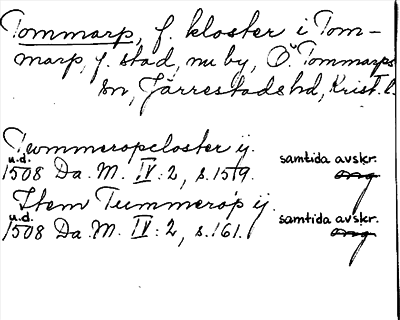 Tommarp, f. kloster i Tom-
marp, f. stad, nu by, Ö. Tommarps
sn, Järrestads hd, Krist. l.
Tummeropcloster ij.
u.d. 1508 Da. M. IV: 2, s. 159. samtida avskr. org
Item Tummerop ij.
u.d. 1508 Da. M. IV: 2, s. 161. samtida avskr. org